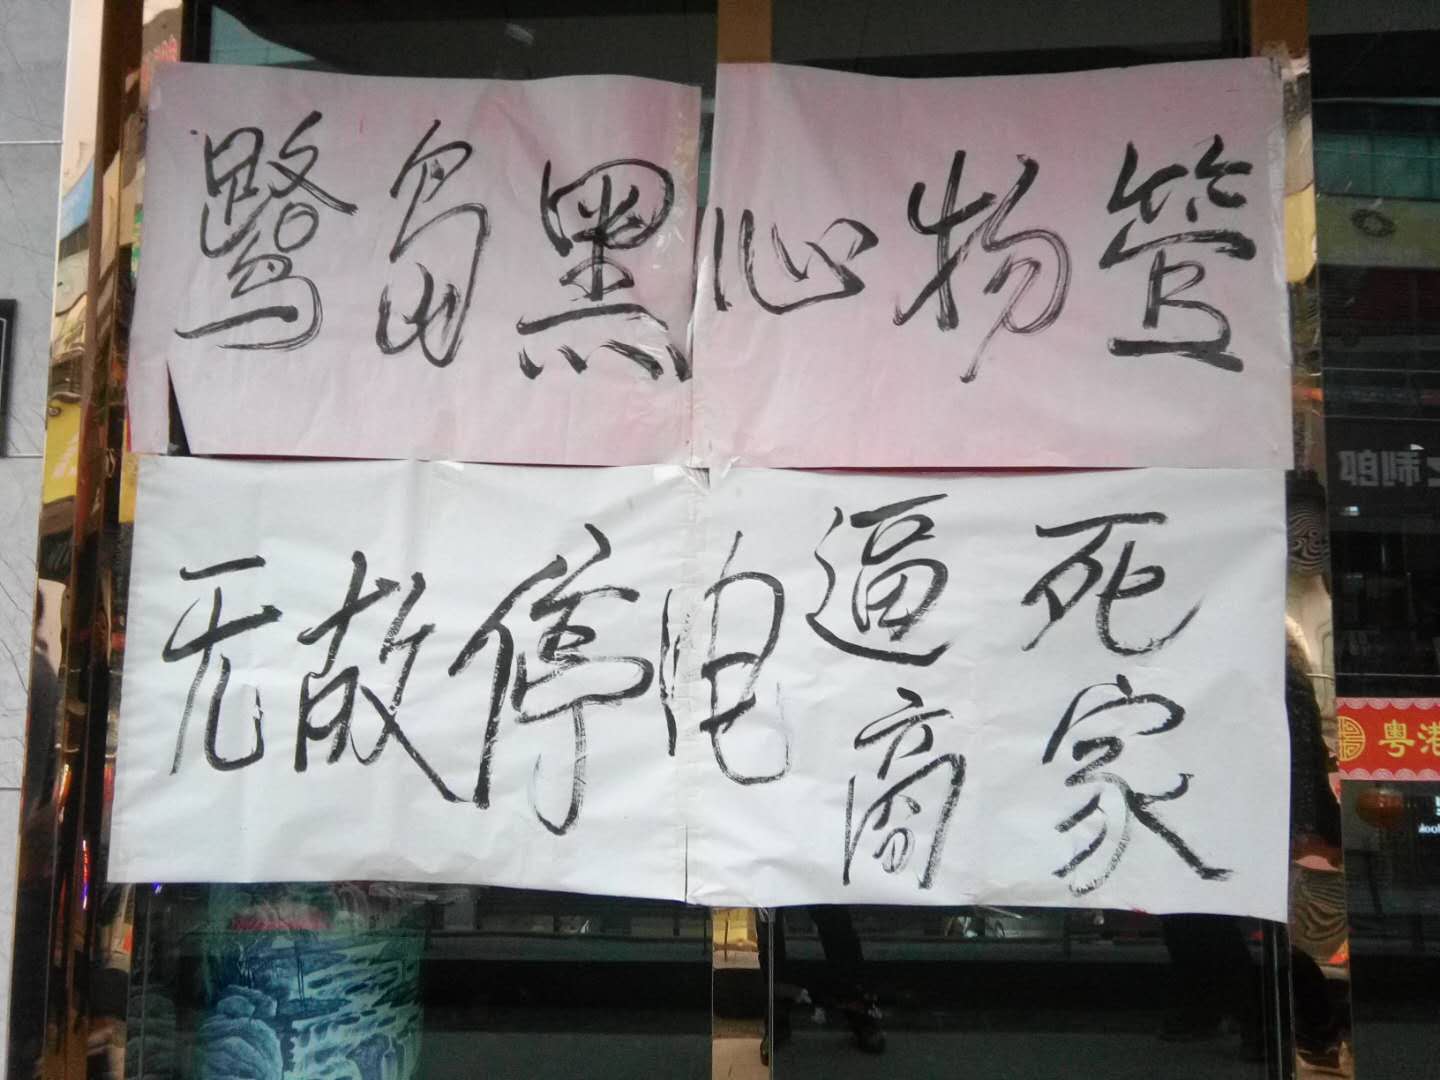 鹭岛黑心物管
无故停电逼死
商家
粤港